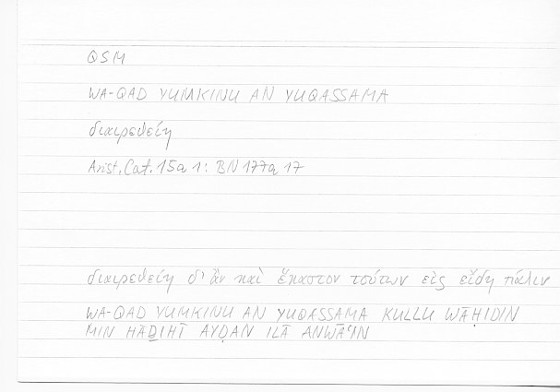 QSM
WA-QAD YUMKINU AN YUQASSAMA
διαιρεθείη
Arist. Cat. 15a 1 : BN 177a 17
διαιρεθείη δ' ἂν καὶ ἕκαστον τούτων εἰς εἴδη πάλιν
WA-QAD YUMKINU AN YUQASSAMA KULLU WĀḤIDIN
MIN HĀḎIHĪ AYḌAN ILĀ ANWĀʿIN